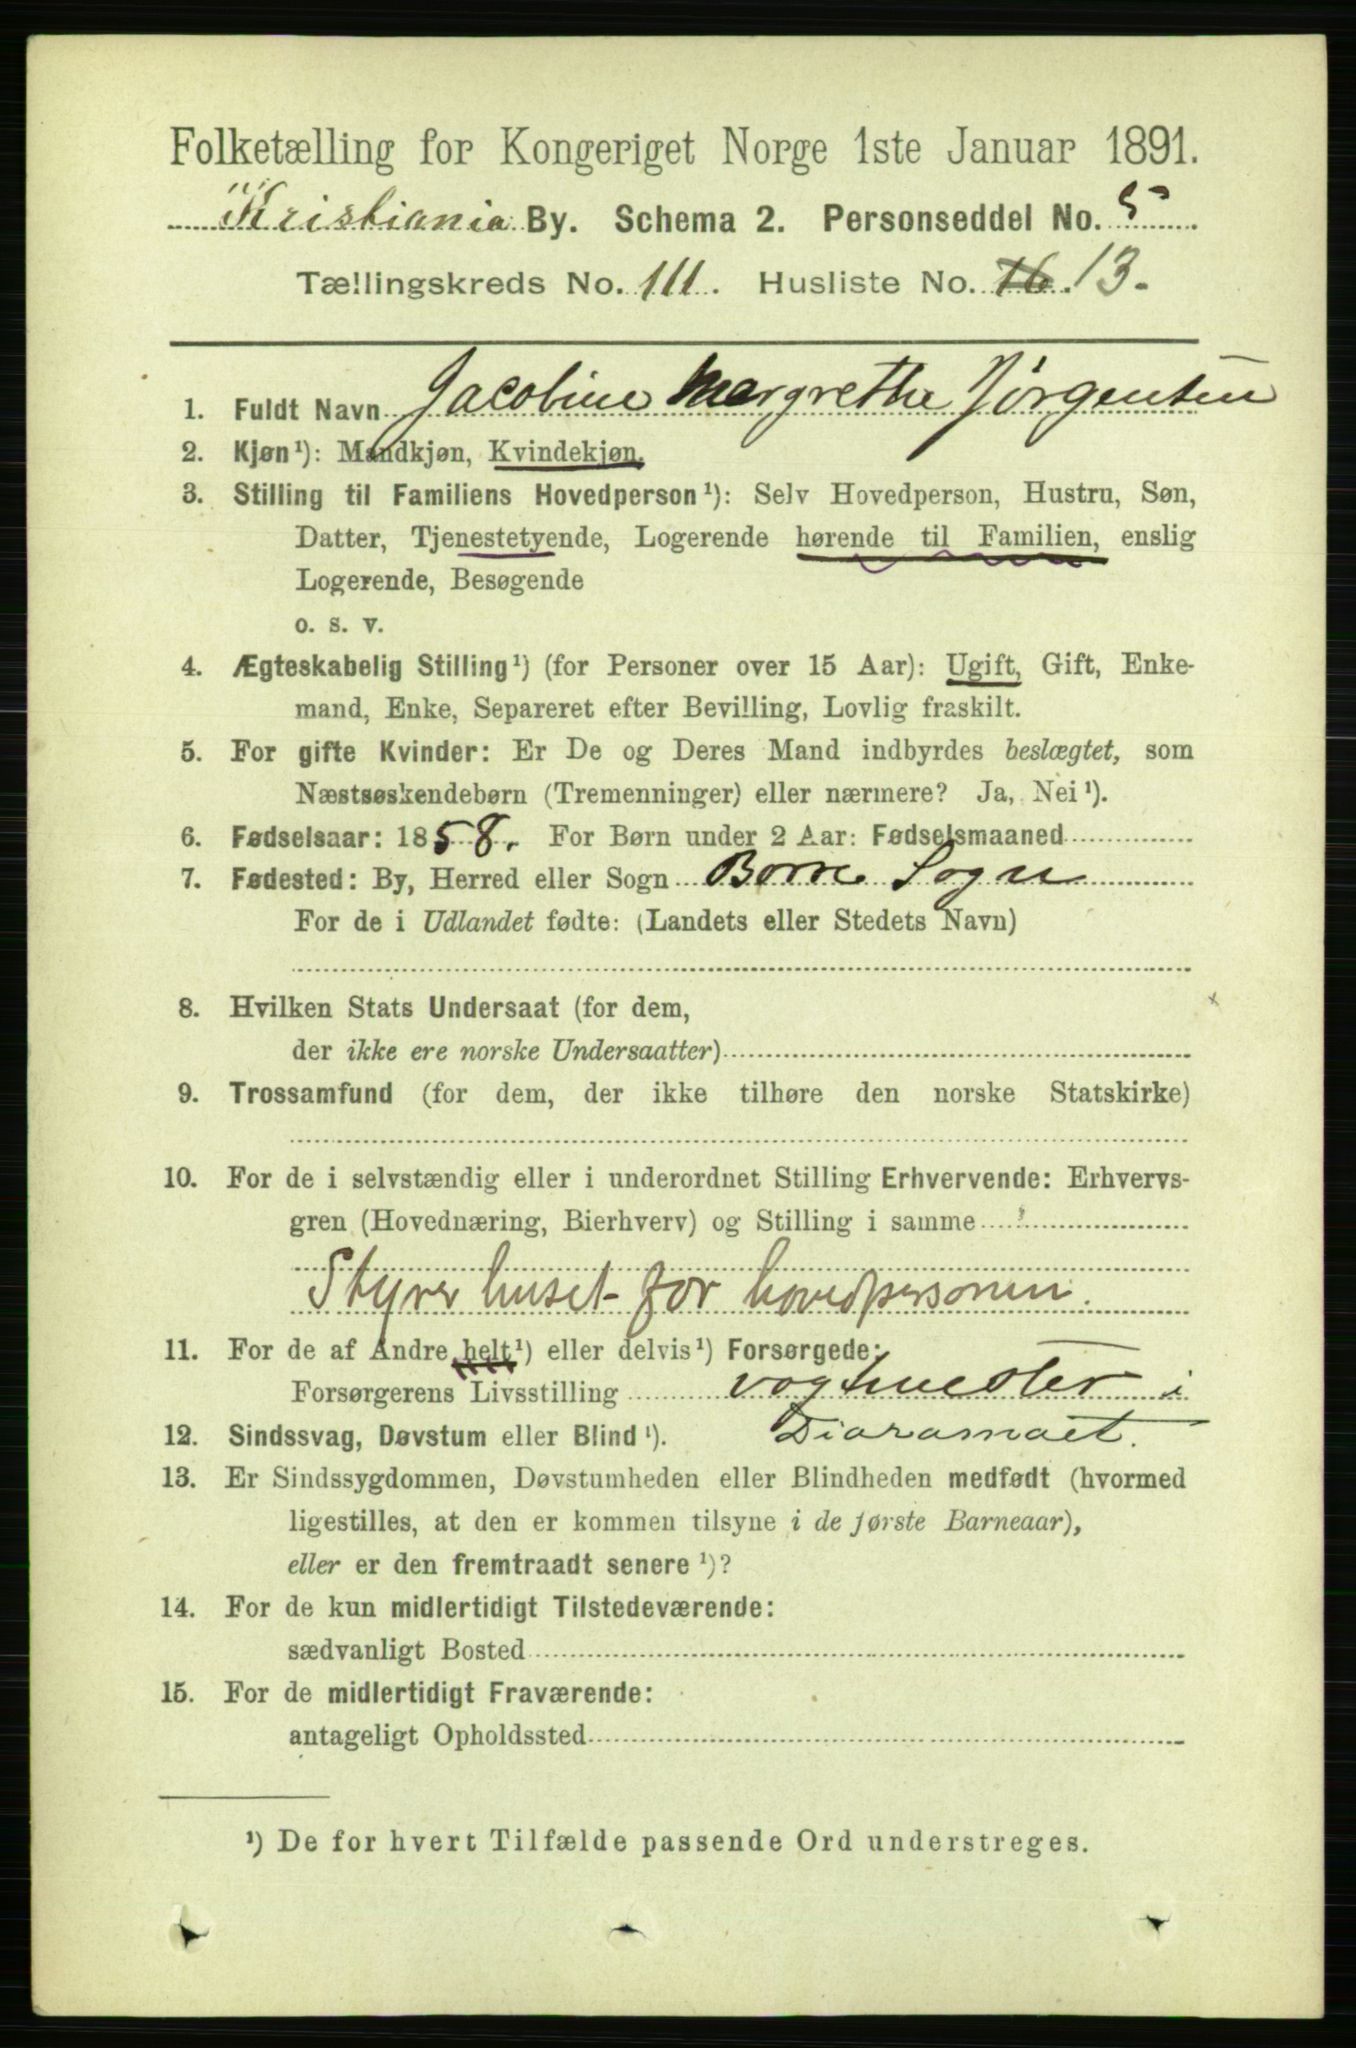 Folketælling for Kongeriget Norge 1ste Januar 1891.
Kristiania By. Schema 2. Personseddel No. 5
Tællingskreds No. 111. Husliste No. 16. 13.
1. Fuldt Navn Jacobine Margrethe Jørgensen
2. Kjøn¹): Mandkjøn, Kvindekjøn.
3. Stilling til Familiens Hovedperson¹): Selv Hovedperson, Hustru, Søn,
Datter, Tjenestetyende, Logerende hørende til Familien, enslig
Logerende, Besøgende
o. s. v.
4. Ægteskabelig Stilling¹) (for Personer over 15 Aar): Ugift, Gift, Enke-
mand, Enke, Separeret efter Bevilling, Lovlig fraskilt.
5. For gifte Kvinder: Er De og Deres Mand indbyrdes beslægtet, som
Næstsøskendebørn (Tremenninger) eller nærmere? Ja, Nei¹).
6. Fødselsaar: 1858. For Børn under 2 Aar: Fødselsmaaned
7. Fødested: By, Herred eller Sogn Borre Sogn
For de i Udlandet fødte: (Landets eller Stedets Navn)
8. Hvilken Stats Undersaat (for dem,
der ikke ere norske Undersaatter)
9. Trossamfund (for dem, der ikke tilhøre den norske Statskirke)
10. For de i selvstændig eller i underordnet Stilling Erhvervende: Erhvervs-
gren (Hovednæring, Bierhverv) og Stilling i samme
Styrer huset for hovedpersonen.
11. For de af Andre helt¹) eller delvis¹) Forsørgede:
Forsørgerens Livsstilling vogtmester i
12. Sindssvag, Døvstum eller Blind¹). Dioramaet.
13. Er Sindssygdommen, Døvstumheden eller Blindheden medfødt (hvormed
ligestilles, at den er kommen tilsyne i de første Barneaar),
eller er den fremtraadt senere¹)?
14. For de kun midlertidigt Tilstedeværende:
sædvanligt Bosted
15. For de midlertidigt Fraværende:
antageligt Opholdssted
¹) De for hvert Tilfælde passende Ord understreges.